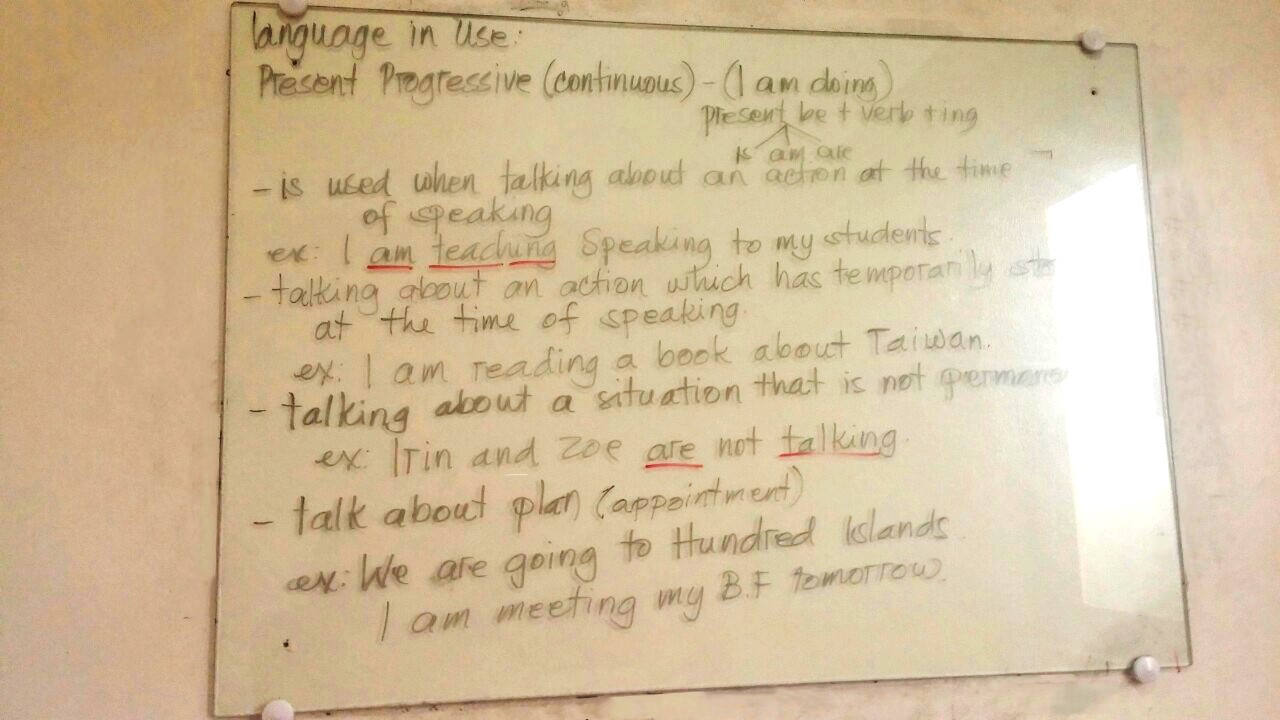 language in Use:
Present Progressive (continuous) - (I am doing)
present be + verb + ing
is am are
- is used when talking about an action at the time
of speaking
ex: I am teaching Speaking to my students.
- talking about an action which has temporarily
at the time of speaking.
ex: I am reading a book about Taiwan.
- talking about a situation that is not
ex: Irin and Zoe are not talking.
- talk about plan (appointment)
ex: We are going to Hundred Islands.
I am meeting my B.F tomorrow.